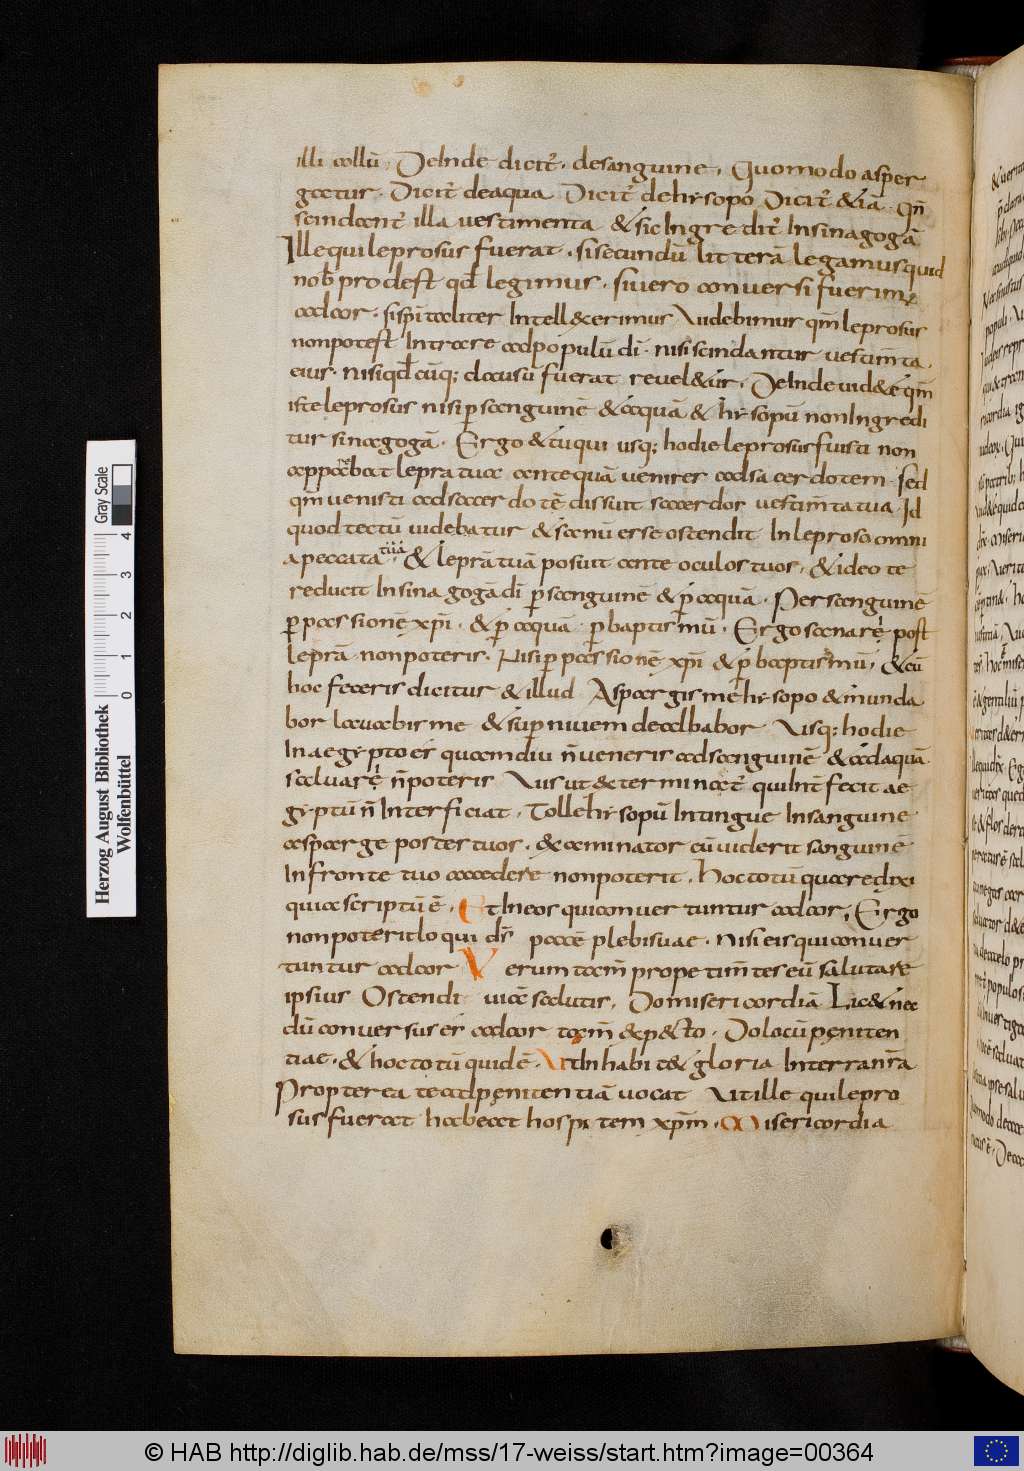 illi collū. DeInde dicit̄. desanguine. Quomodo asper
gatur. Dicit̄ deaqua Dicit̄ dehysopo Dicit̄ &iā. qn̄
scindant̄ illa vestimenta & sic Ingredit̄ Insinagogā
Ille qui leprosus fuerat. sisecundū litterā legamus quid
nob prodest qd legimus. sivero conversi fuerim;
addor. sisp̄italiter Intell&erimus Videbimus qm̄ leprosus
nonpotest Intrare adpopulū dī. nisi scindantur vestim̄ta
eius. nisi qd cūq; clausū fuerat revel&ur. DeInde vid&e qm̄
iste leprosus nisi p sanguinē & aquā & hysopū nonIngredi
tur sinagogā. Ergo & tu qui usq; hodie leprosus fuisti non
apparebat lepra tua antequā venires adsacerdotem. sed
qm̄ venisti adsacerdotē dissuit sacerdos vestim̄ta tua. Id
quod tectū videbatur & sanū erse ostendit In leproso omni
a peccata tua. & leprā tuā posuit ante oculos tuos. & ideo te
reducit Insinagogā dī p sanguinē & p aquā. Per sanguinē
p passionē xp̄i. & p aquā. p baptismū. Ergo sanare post
leprā nonpoteris. Nisi p passionē xp̄i & p baptismū. & cū
hoc feceris dicitur & illud Aspargis me hysopo & munda
bor lavabis me & sup nivem dealbabor Usq; hodie
In aegypto es quamdiu n̄ veneris adsanguinē & adaquā
salvare n̄ poteris Vis ut & terminat̄ qui Int̄fecit ae
gyptū n̄ Interficiat. Tolle hysopū Intingue Insanguine
asparge postes tuos. & aminator cū viderit sanguinē
Infronte tuo accedere nonpoterit. Hoc totū quare dixi
quia scriptū ē. Et Ineos qui convertuntur adcor. Ergo
nonpoterit loqui ds̄ pacē plebi suae. nisi eis qui conver
tuntur adcor Verum tam̄ prope tim̄tes eū salutare
ipsius Ostendi vias salutis. Do misericordiā Lic& nec
dū conversus es adcor tam̄ &p&to. Do locū peniten
tiae. & hoc totū quidē. Ut Inhabit& gloria Interran̄ra
Propterea te ad penitentiā vocat Ut ille qui lepro
sus fuerat habeat hospitem xp̄m. Misericordia
Herzog August Bibliothek
Wolfenbüttel
0 1 2 3 4
Gray Scale
© HAB http://diglib.hab.de/mss/17-weiss/start.htm?image=00364